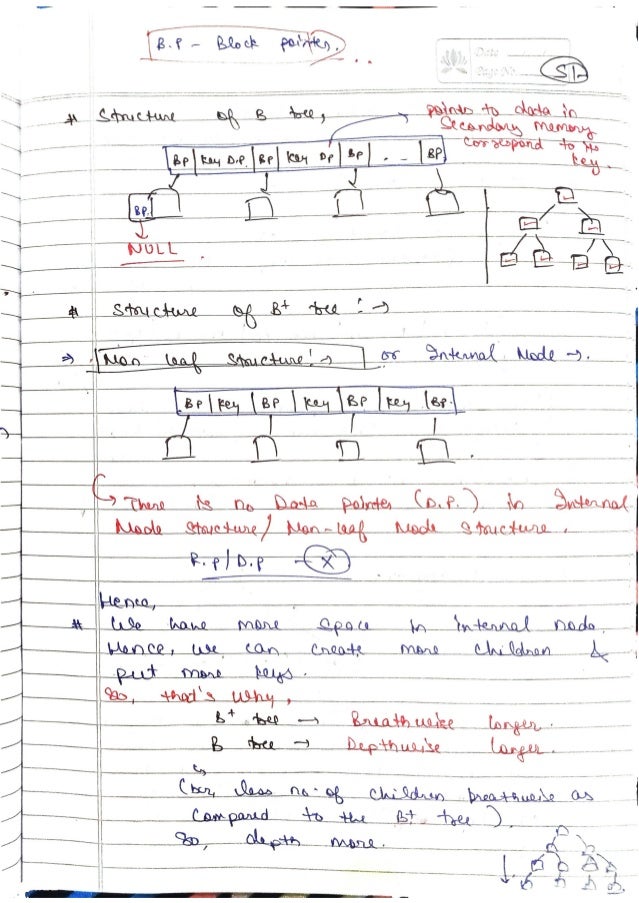 B.P - Block pointer.
Date
Page No.
51
# Structure of B tree,
points to data in
Secondary memory
correspond to its
key.
BP | Key D.P. | BP | Key DP | BP | . - - | BP
BP.
NULL
# Structure of B+ tree : →
⇒ Non leaf structure! → or Internal Node →.
BP | Key | BP | Key | BP | Key | BP.
There is no Data pointer (D.P.) in Internal
Node structure / Non-leaf Node structure.
R.P / D.P - X
Hence,
# We have more space in internal node.
Hence, we can create more children &
put more keys.
So, that's why,
B+ tree → Breathwise longer.
B tree → Depthwise longer.
(bcz, less no. of children breathwise as
compared to the B+ tree).
So, depth more.